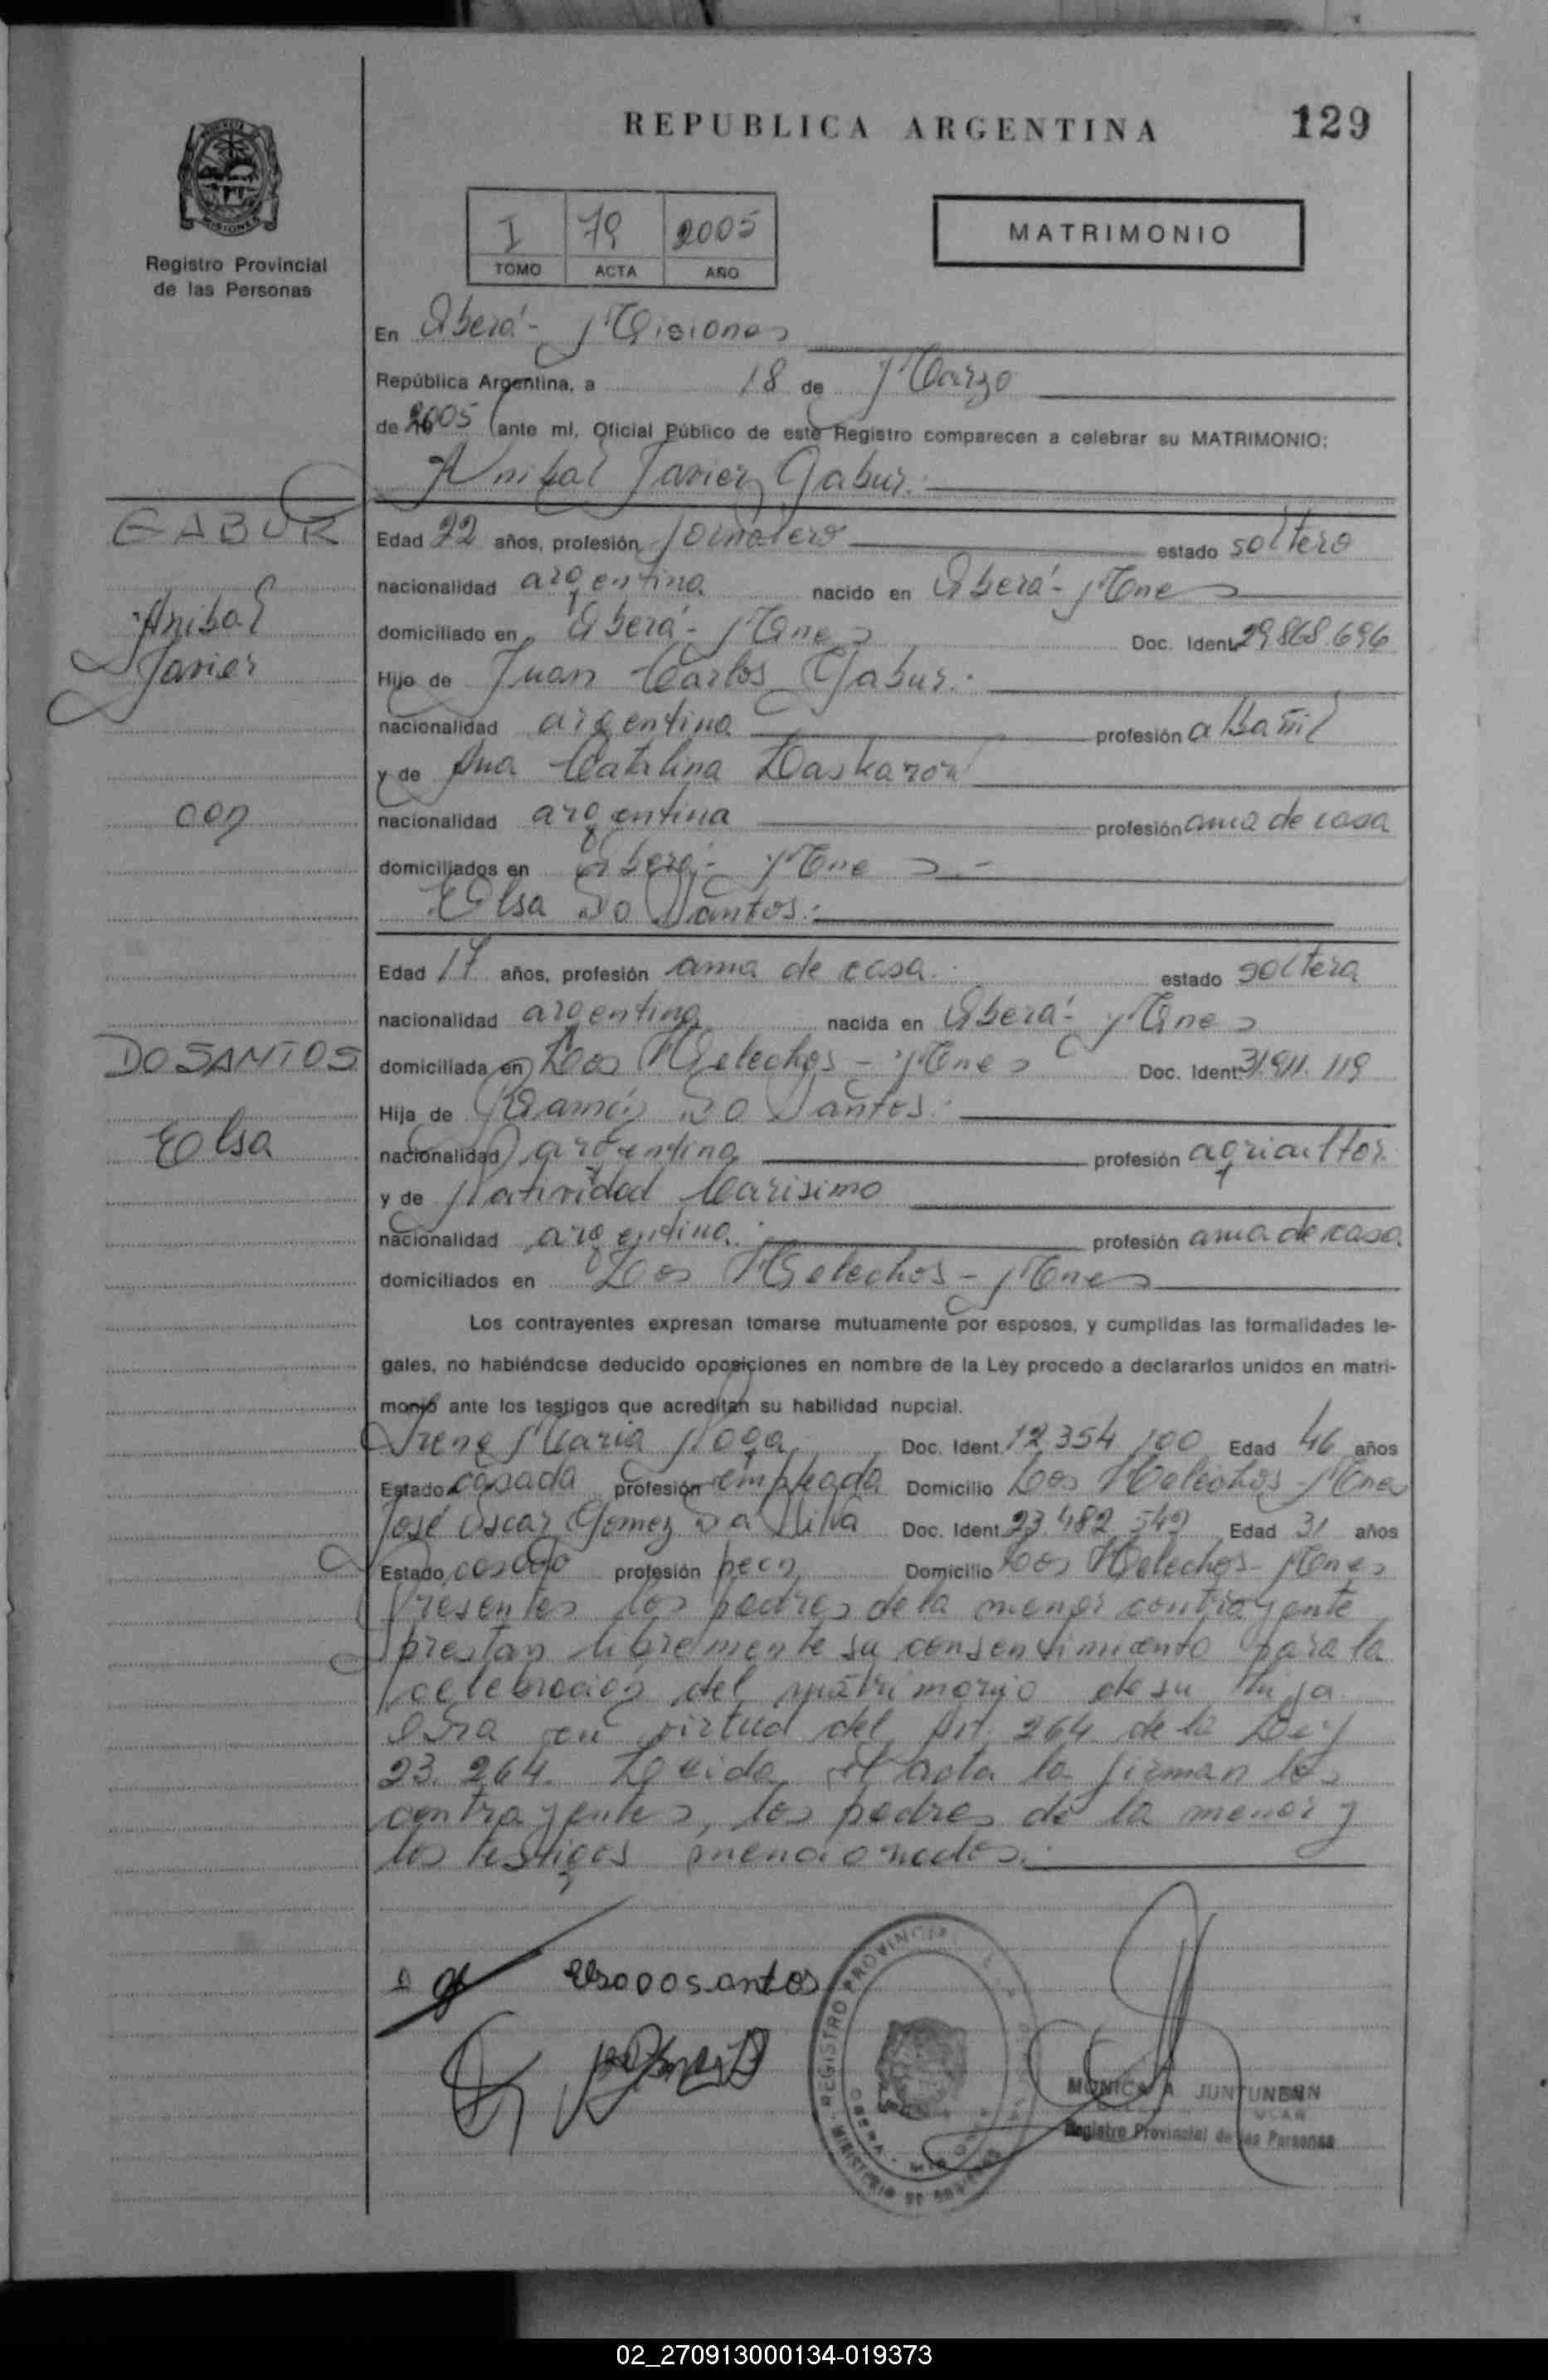 REPUBLICA ARGENTINA
129
Registro Provincial
de las Personas
I 79 2005
TOMO ACTA AÑO
MATRIMONIO
En Oberá - Misiones
República Argentina, a 18 de Marzo
de 2005 ante mí, Oficial Público de este Registro comparecen a celebrar su MATRIMONIO:
Anibal Javier Gabur.
GABUR
Anibal
Javier
con
DO SANTOS
Elsa
Edad 22 años, profesión Jornalero estado soltero
nacionalidad argentina nacido en Oberá - Mnes
domiciliado en Oberá - Mnes Doc. Ident. 29.868.696
Hijo de Juan Carlos Gabur.
nacionalidad argentina profesión albañil
y de Ana Catalina
nacionalidad argentina profesión ama de casa
domiciliados en Oberá - Mnes.-
Elsa Do Santos.
Edad 17 años, profesión ama de casa. estado soltera
nacionalidad argentina nacida en Oberá - Mnes
domiciliada en Los Helechos - Mnes Doc. Ident. 31.911.119
Hija de Ramón Do Santos.
nacionalidad argentina profesión agricultor.
y de Natividad Carisimo
nacionalidad argentina. profesión ama de casa.
domiciliados en Los Helechos - Mnes
Los contrayentes expresan tomarse mutuamente por esposos, y cumplidas las formalidades le-
gales, no habiéndose deducido oposiciones en nombre de la Ley procedo a declararlos unidos en matri-
monio ante los testigos que acreditan su habilidad nupcial.
Irene Maria Noga Doc. Ident. 12.354.100 Edad 46 años
Estado casada profesión empleada Domicilio Los Helechos - Mnes
José Oscar Gomez Da Silva Doc. Ident. 23.482.542 Edad 31 años
Estado casado profesión peon Domicilio Los Helechos - Mnes
Presentes los padres de la menor contrayente
prestan libremente su consentimiento para la
celebración del matrimonio de su hija
en virtud del Art. 264 de la Ley
23.264. Leida el acta la firman los
contrayentes, los padres de la menor y
los testigos mencionados.
REGISTRO PROVINCIAL
MONICA A JUNTUNENN
Registro Provincial de las Personas
02_270913000134-019373